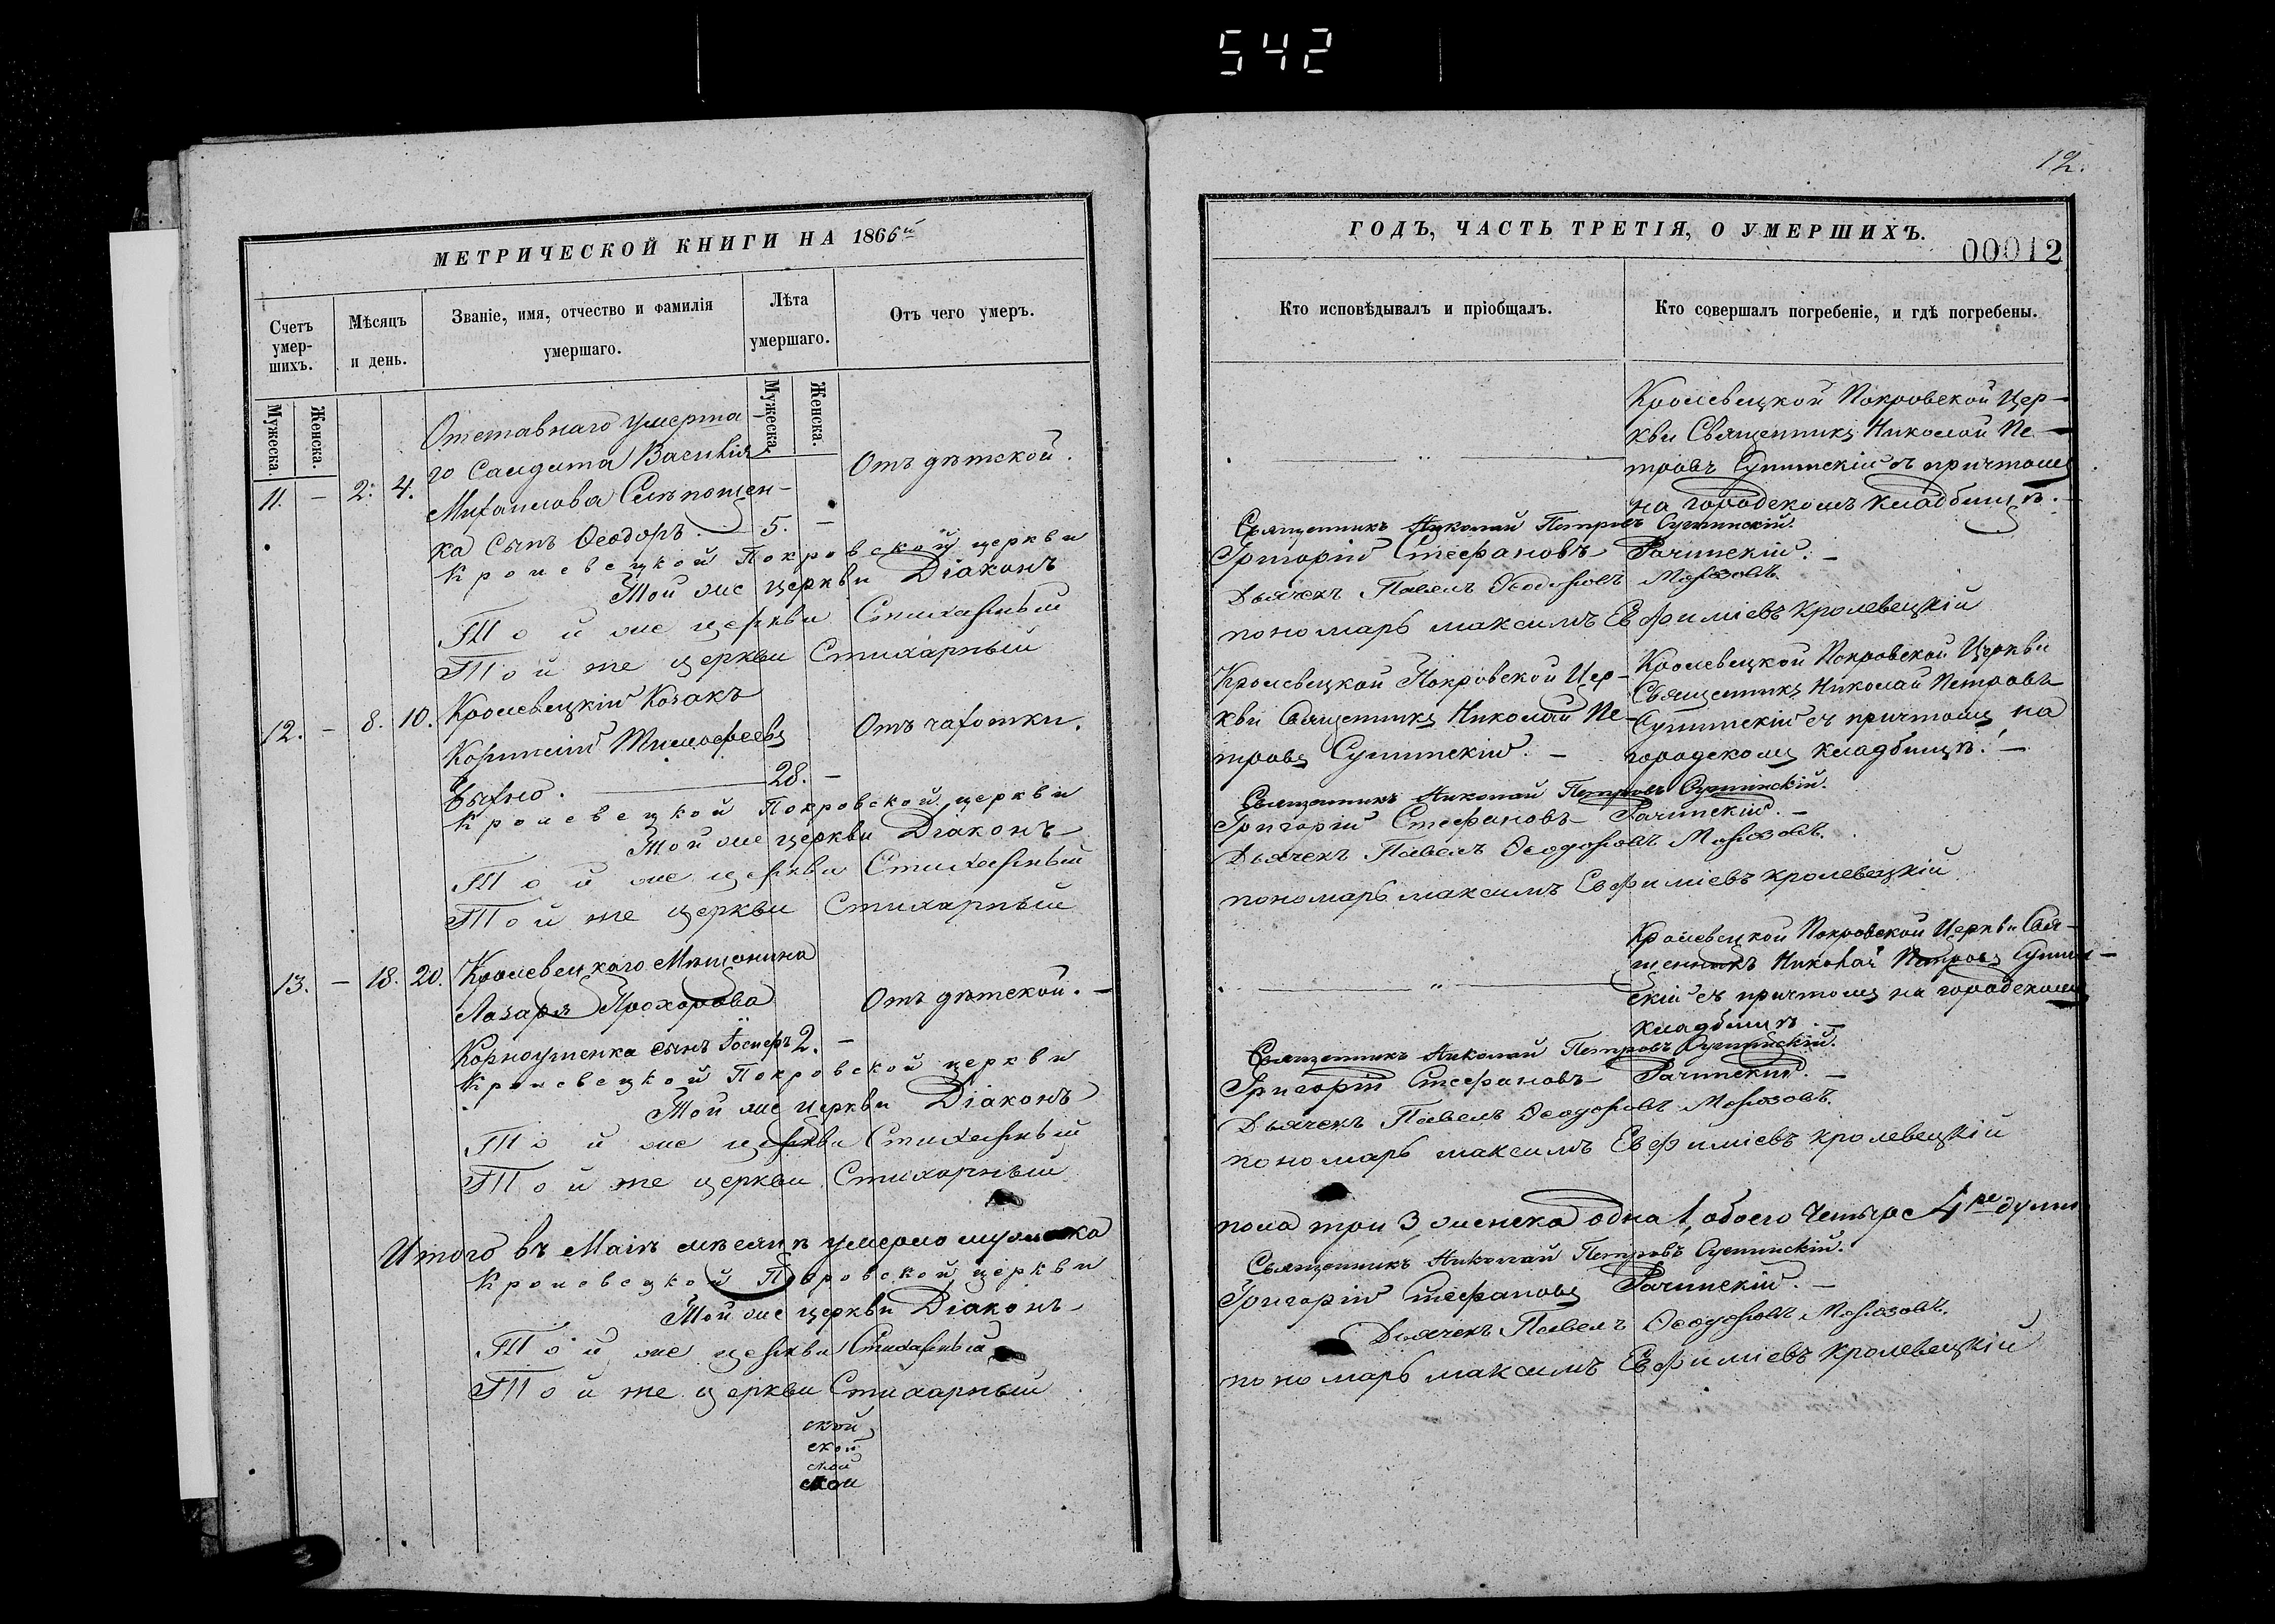 542
12.
МЕТРИЧЕСКОЙ КНИГИ НА 1866й
Счетъ умершихъ.
Мѣсяцъ и день.
Званіе, имя, отчество и фамилія умершаго.
Лѣта умершаго.
Отъ чего умеръ.
Мужеска.
Женска.
Мужеска.
Женска.
11. — 2. 4.
Отставнаго умерша-
го Салдата Василія
Михаилова
ка сынъ Ѳеодоръ. — 5. —
Отъ дѣтской.
Кролевецкой Покровской церкви
Той же церкви Діаконъ
Той же церкви Стихарный
Той же церкви Стихарный
12. — 8. 10.
Кролевецкій Козакъ
Тимоѳеевъ
28. —
Отъ чахотки.
Кролевецкой Покровской церкви
Той же церкви Діаконъ
Той же церкви Стихарный
Той же церкви Стихарный
13. — 18. 20.
Кролевецкаго Мѣщанина
Лазаря Прохорова
Корноушенка сынъ Іосифъ 2. —
Отъ дѣтской. —
Кролевецкой Покровской церкви
Той же церкви Діаконъ
Той же церкви Стихарный
Той же церкви Стихарный
Итого въ Маіѣ мѣсяцѣ умерло мужеска
Кролевецкой Покровской церкви
Той же церкви Діаконъ
Той же церкви Стихарный
Той же церкви Стихарный
ской
ской
ской
ской
ГОДЪ, ЧАСТЬ ТРЕТІЯ, О УМЕРШИХЪ.
00012
Кто исповѣдывалъ и пріобщалъ.
Кто совершалъ погребеніе, и гдѣ погребены.
Кролевецкой Покровской Цер-
кви Священникъ Николай Пе-
тровъ съ причтомъ
на городскомъ кладбищѣ. —
Священникъ Николай Петровъ
Григорій Стефановъ Рачинскій. —
Дьячекъ Павелъ Ѳеодоровъ Морозовъ.
пономарь максимъ Евфиміевъ кролевецкій
Кролевецкой Покровской Цер-
кви Священникъ Николай Пе-
тровъ
Кролевецкой Покровской Церкви
Священникъ Николай Петровъ
съ причтомъ на
городскомъ кладбищѣ. —
Священникъ Николай Петровъ
Григорій Стефановъ Рачинскій. —
Дьячекъ Павелъ Ѳеодоровъ Морозовъ.
пономарь максимъ Евфиміевъ кролевецкій
Кролевецкой Покровской Церкви Свя-
щенникъ Николай Петровъ
скій съ причтомъ на городскомъ
кладбищѣ. —
Священникъ Николай Петровъ
Григорій Стефановъ Рачинскій. —
Дьячекъ Павелъ Ѳеодоровъ Морозовъ.
пономарь максимъ Евфиміевъ кролевецкій
пола три 3, женска одна 1, обоего четыре 4ре души
Священникъ Николай Петровъ
Григорій Стефановъ Рачинскій. —
Дьячекъ Павелъ Ѳеодоровъ Морозовъ.
пономарь максимъ Евфиміевъ кролевецкій